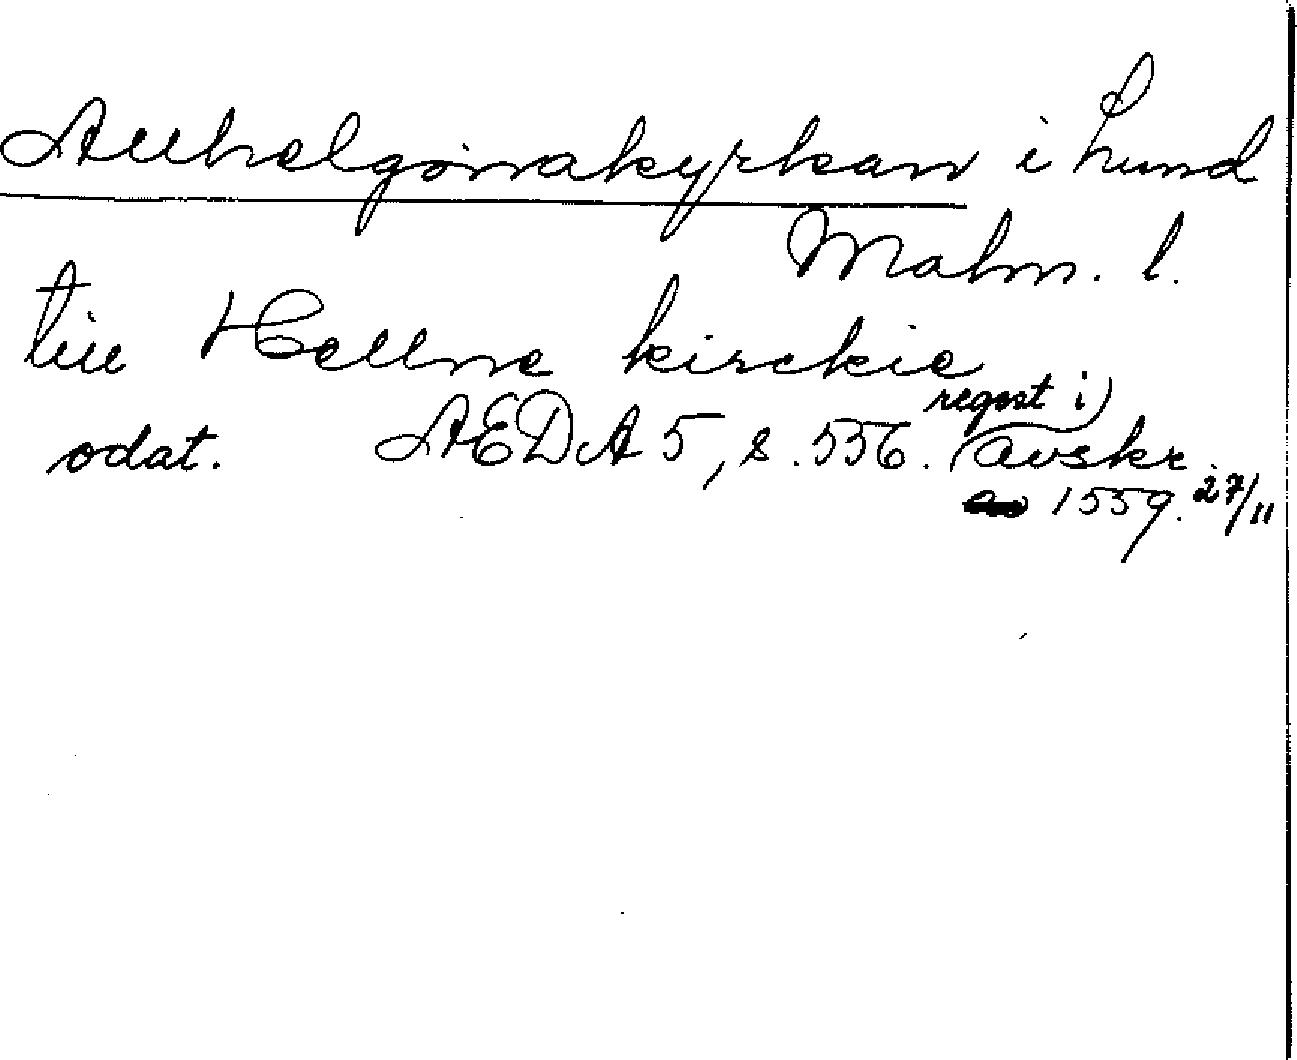 Allhelgonakyrkan i Lund
Malm. l.
till Hellne kirckie
odat. ÆDA 5, s. 556. (regest i) avskr.
1559. 27/11